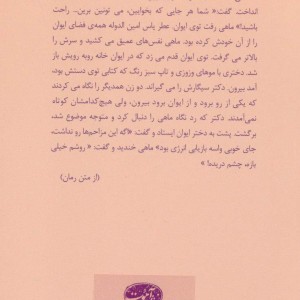 انداخت گفت:« شما هر جایی که بخوایین، می تونین برین.. راحت
باشید!» ماهی رفت توی ایوان. عطر یاس امین الدوله همه‌ی فضای ایوان
را از آن خودش کرده بود. ماهی نفس‌های عمیق می کشید و سرش را
بالاتر می گرفت. توی ایوان قدم می زد که در ایوان خانه روبه رویش باز
شد. دختری با موهای وزوزی و تاپ سبز رنگ که کتابی توی دستش بود،
آمد بیرون. دکتر سیگارش را می گیراند. دو زن همدیگر را نگاه می کردند
که یکی از رو برود و از ایوان برود بیرون، ولی هیچ‌کدامشان کوتاه
نمی‌آمدند. دکتر که رد نگاه ماهی را دنبال کرد و متوجه موضوع شد،
برگشت. پشت به دختر ایوان ایستاد و گفت: «اگه این مزاحم‌ها رو نداشت،
جای خوبی واسه بازیابی انرژی بود» ماهی خندید و گفت: « روشم خیلی
بازه، چشم دریده! »
(از متن رمان)